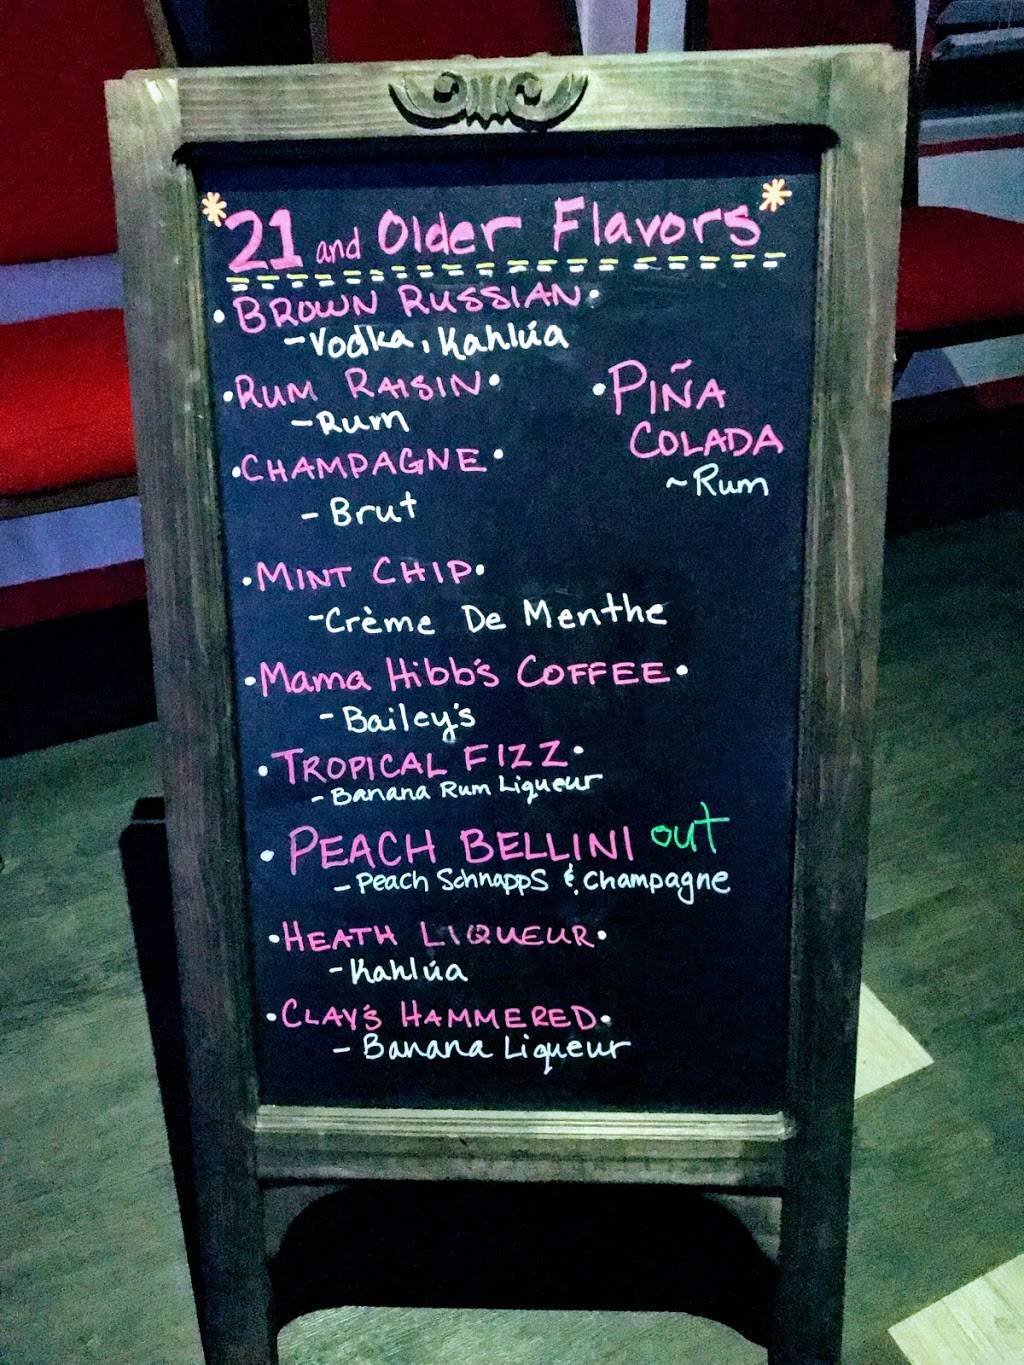 *21 and Older Flavors*
• BROWN RUSSIAN •
- Vodka, Kahlúa
• RUM RAISIN •
- Rum
• CHAMPAGNE •
- Brut
• MINT CHIP •
- Crème De Menthe
• Mama Hibb's COFFEE •
- Bailey's
• TROPICAL FIZZ •
- Banana Rum Liqueur
• PEACH BELLINI out
- Peach Schnapps & Champagne
• HEATH LIQUEUR •
- Kahlúa
• CLAY'S HAMMERED •
- Banana Liqueur
• PIÑA
COLADA
~ Rum